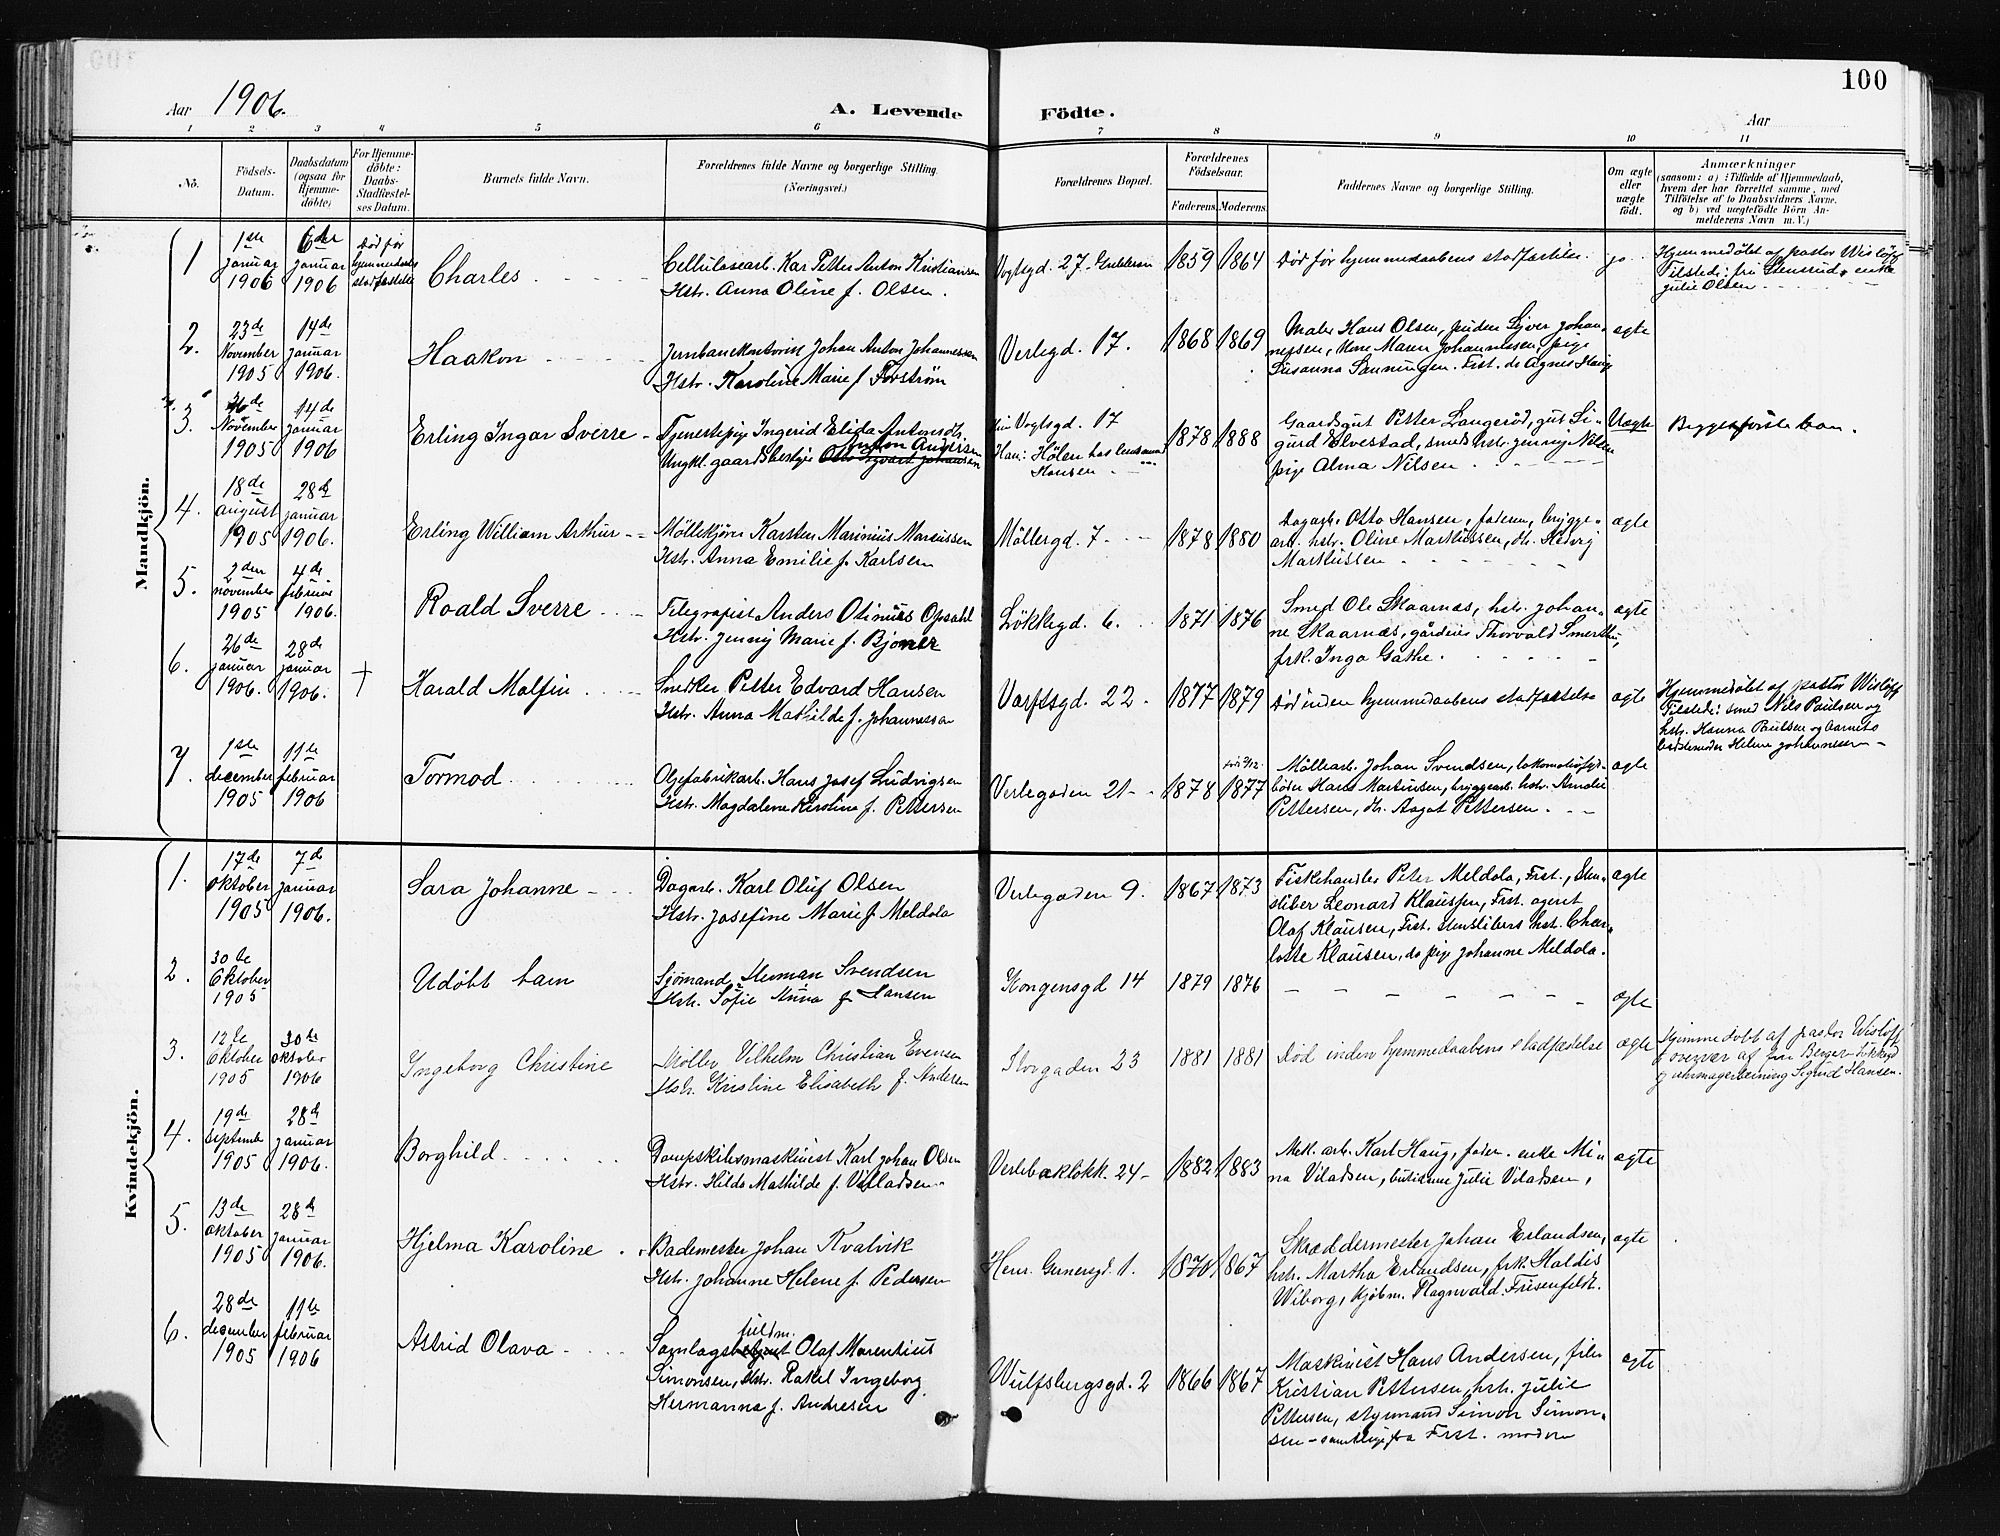 100
Aar 1906.
A. Levende Födte.
Aar
1 2 3 4 5 6 7 8 9 10 11
No.
Födsels-Datum.
Daabsdatum (ogsaa for Hjemme-döbte)
For Hjemme-döbte: Daabs-Stadfæstel-ses Datum.
Barnets fulde Navn.
Forældrenes fulde Navne og borgerlige Stilling. (Næringsvei.)
Forældrenes Bopæl.
Forældrenes Födselsaar.
Faderens. Moderens.
Faddernes Navne og borgerlige Stilling.
Om ægte eller uægte födt.
Anmærkninger
(saasom: a) i Tilfælde af Hjemmedaab,
hvem der har forrettet samme, med
Tilföielse af to Daabsvidners Navne.
og b) ved uægtefödte Börn An-
melderens Navn m. V.)
Mandkjön.
1 1ste januar 1906 6der januar 1906 Död för hjemmedaabs stadfæstelse
Charles
Cellulosearb. Kar Petter Anton Kristiansen
Hstr. Anna Oline f. Olsen.
Vogtsgd. 27. 1859 1864
Död för hjemmedaabens stadfæstelse
Hjemmedøbt af pastor Wisløff
Tilstede: fru Stensrud, enke
Julie Olsen
2. 23de November 1905 14de januar 1906.
Haakon
Jernbanekontorist Johan Anton Johannessen
Hstr. Karoline Marie f. Forström
Verlegd. 17. 1868 1869
Maler Hans Olsen, Syver Johan-
nessen, Kone Maren Johannessen, pige
Susanna ... Frst. do Agnes Hauge
ægte
3. November 1905 14de januar 1906
Erling Ingar Sverre
Tjenestepige Ingerid Elida Antonsdtr.
Anton Andersen
Ungkl. gaardsbestyr.
Vogtsgd. 17
Han: Hölen hos lensmand
Hansen
1878 1888
Gaardsgut Petter Langeröd, gut Si-
gurd Elvestad, smeds hstr. Jenny Nilsen
pige Alma Nilsen
Uægte
Begges förste barn.
4. 18de august 1905 28de januar 1906.
Erling William Arthur
Möllekjörer Karsten Marinius Marcussen
Hstr. Anna Emilie f. Karlsen
Möllergd. 7 1878 1880
Dagarb. Otto Hansen, faderen, brygge-
arb. hstr. Oline Markussen, dtr. Hedvig
Markussen
ægte
5. 2den november 1905 4de februar 1906.
Roald Sverre
Telegrafist Anders Otinius Opsahl
Hstr. Jenny Marie f. Bjöner
Lökkegd. 6. 1871 1876
Smed Ole Skaarnæs, hstr. Johan-
ne Skaarnæs, gårdeier Thorvald
frk. Inga Gathe.
ægte
6. 26de januar 1906. 28de januar 1906. †
Harald Malfin
Snedker Petter Edvard Hansen
Hstr. Anna Mathilde f. Johannessen
Varftsgd. 22 1877 1879
Död inden hjemmedaabens stadfæstelse
ægte
Hjemmedøbt af pastor Wisløff
Tilstede: smed Nils Paulsen og
hstr. Hanna Paulsen og barnets
bedstemoder Helene Johannessen
7. 1ste december 1905 11te februar 1906
Tormod
Oljefabrikarb. Hans Josef Ludvigsen
Hstr. Magdalene Karoline f. Pettersen
Verlegaden 21 1878 1877
Möllearb. Johan Svendsen, lokomotivfyr-
böder Hans Martinsen, bryggearb. hstr. Amalie
Pettersen, dtr. Aagot Pettersen
ægte
Kvindekjön.
1. 17de oktober 1905 7de januar 1906.
Sara Johanne
Dagarb. Karl Oluf Olsen
Hstr. Josefine Marie f. Meldola
Verlegaden 9. 1867 1873
Fiskehandler Peter Meldola, Frst., sten-
sliber Leonard Klaussen, Frst. agent
Olaf Klausen, Frst. stenslibers hst. Char-
lotte Klausen, do pige Johanne Meldola.
ægte
2. 30te Oktober 1905
Udöbt barn
Sjömand Herman Svendsen
Hstr. Sofie Anna f. Hansen
Kongensgd 14 1879 1876
ægte
3. 12te Oktober 1905 30te oktober 1906
Ingeborg Christine
Möller Vilhelm Christian Evensen
Hstr. Kristine Elisabeth f. Andersen
Storgaden 23 1881 1881
Död inden hjemmedaabens stadfæstelse
ægte
Hjemmedøbt af pastor Wisløff
i overvær af fru Berger
og uhrmagerlærling Sigrid Hansen.
4. 19de september 1905 28de januar 1906.
Borghild
Dampskibsmaskinist Karl Johan Olsen
Hstr. Hilda Mathilde f. Viladsen
Verlebakløkk. 24 1882 1883
Mek. arb. Karl Haug, fader. enke Mi-
na Viladsen, butikdame Julie Viladsen,
ægte
5. 13de oktober 1905 28de januar 1906.
Hjelma Karoline
Bademester Johan Kvalvik
Hstr. Johanne Helene f. Pedersen
Henr. Gernersgd. 1. 1870 1867
Skræddermester Johan Erlandsen,
hstr. Martha Erlandsen, frk. Haldis
Wiborg, kjöbm. Ragnvald Friesenfeldt.
ægte
6. 28de december 1905 11te februar 1906
Astrid Olava
fuldm.
Samlags Olaf Marentius
Simonsen, Hstr. Rakel Ingeborg
Hermanna f. Andresen
Wulfsbergsgd. 2 1866 1867
Maskinist Hans Andersen, filer
Kristian Pettersen, hstr. Julie
Pettersen, styrmand Simon Simon-
sen - samtlige fra Frst. moderen
ægte